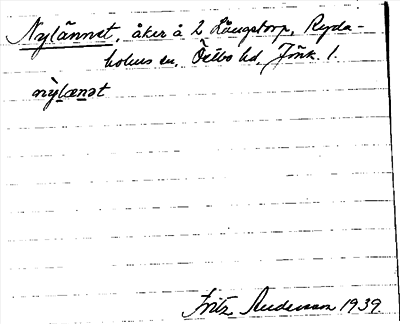 Nylännet, åker å 2 Långstorp, Ryda-
holms sn, Östbo hd, Jönk. l.
nỳlænət
Fritz Andersson 1939.